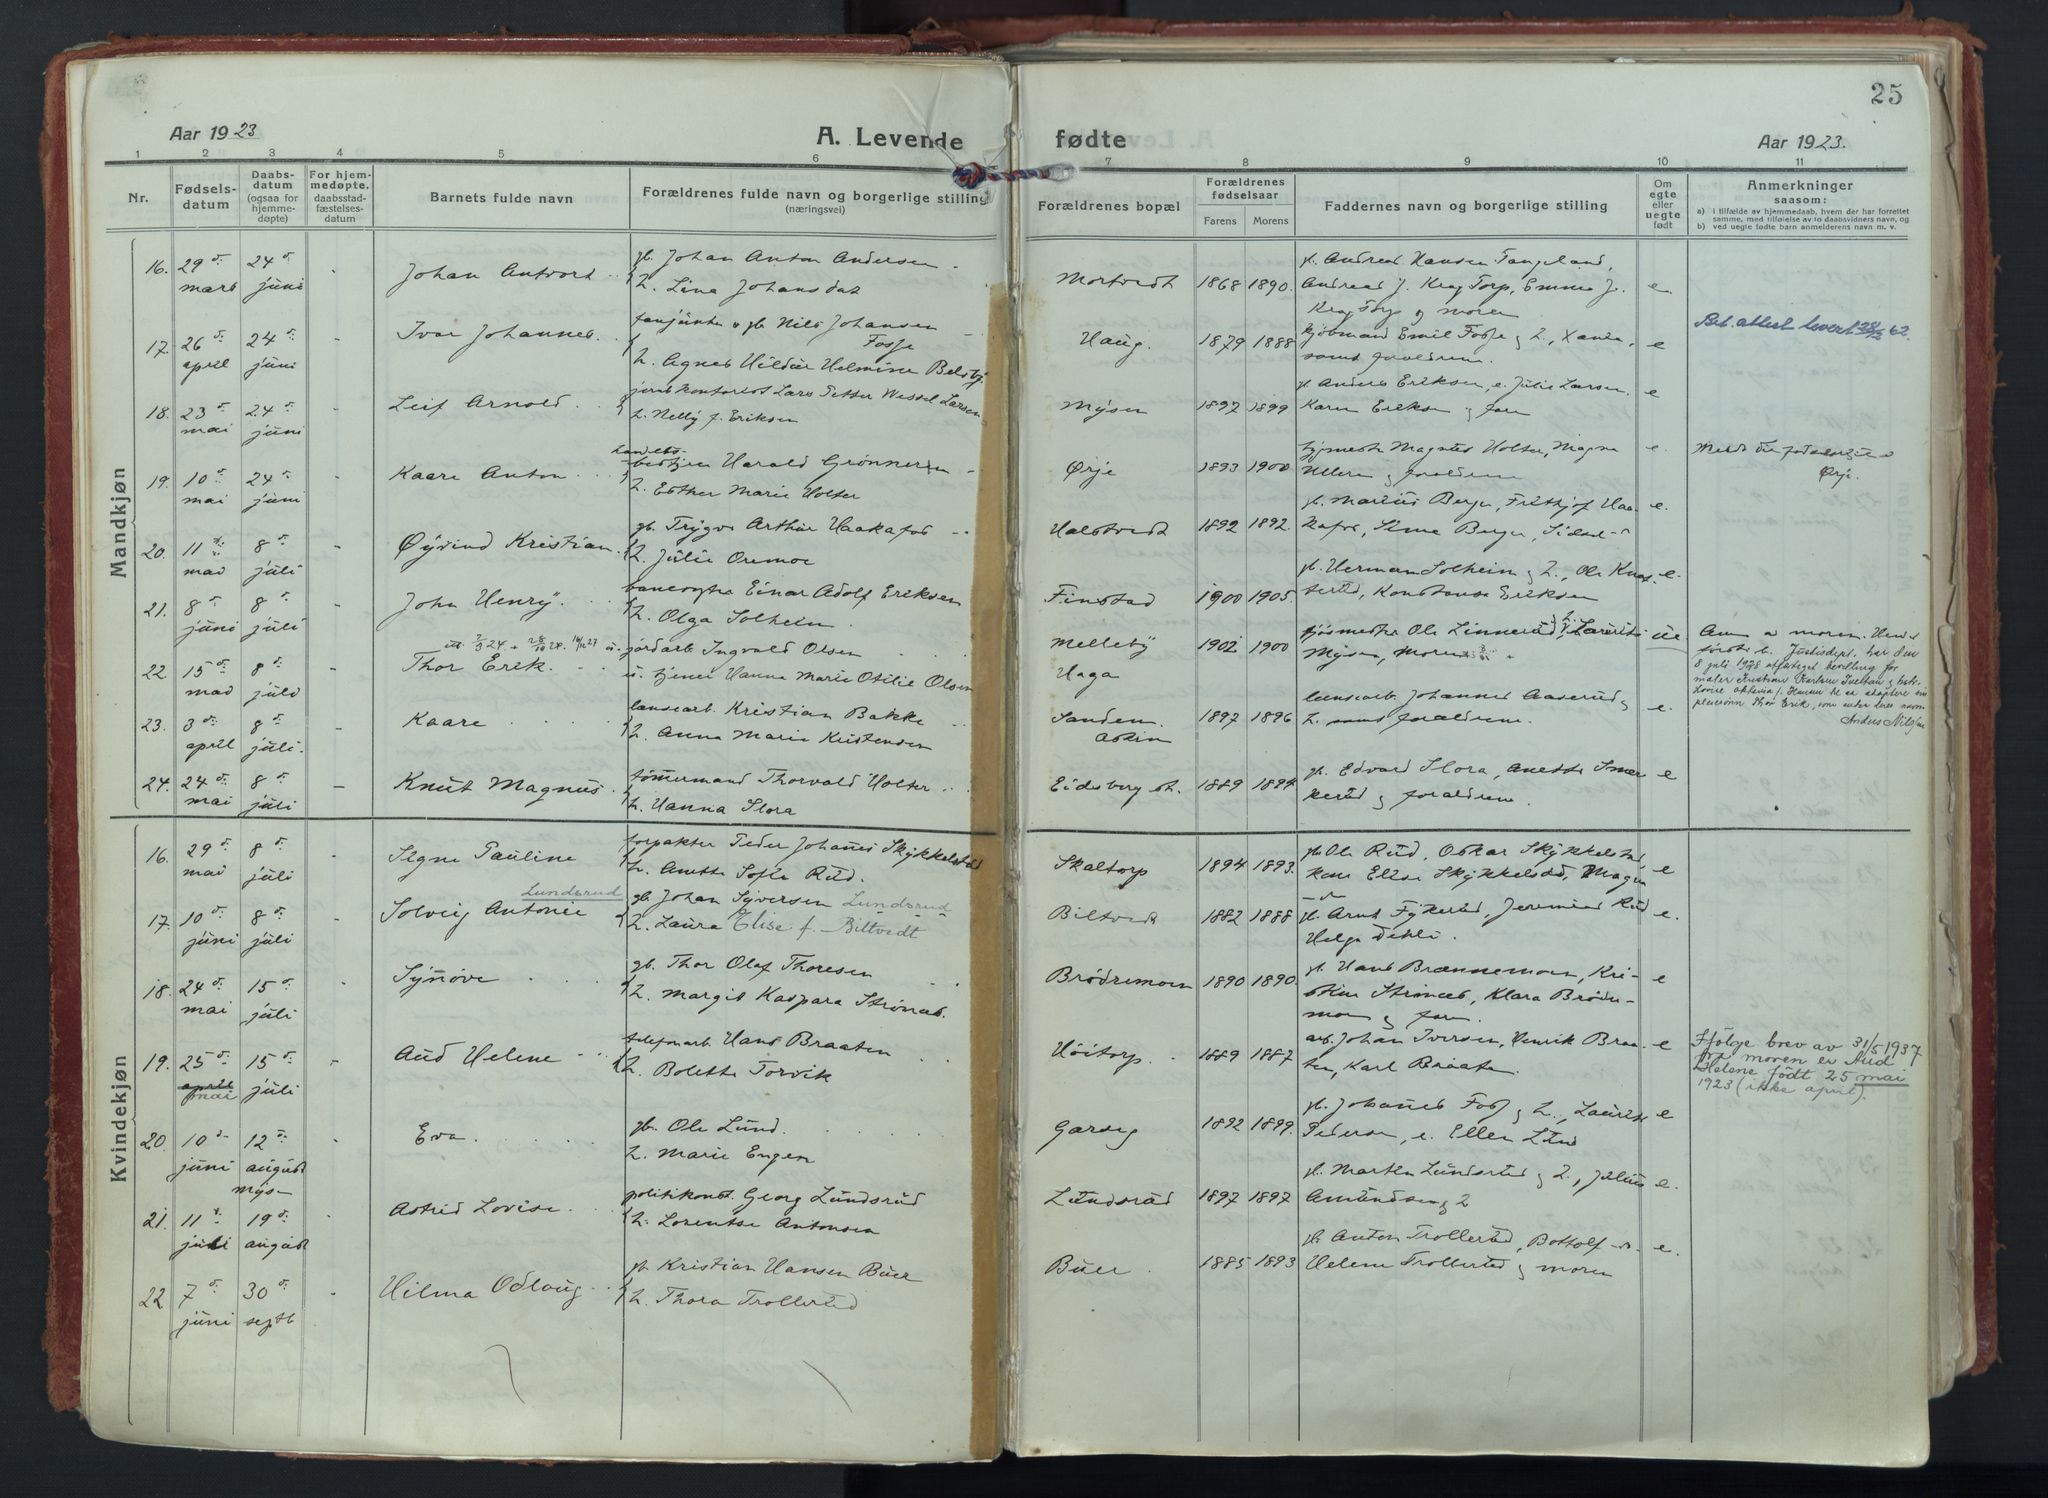 25
Aar 1923
A. Levende
fødte
Aar 1923.
1 2 3 4 5 6 7 8 9 10 11
Nr.
Fødselsdatum
Daabsdatum (ogsaa for hjemmedøpte)
For hjemmedøpte, daabsstadfæstelsesdatum
Barnets fulde navn
Forældrenes fulde navn og borgerlige stilling (næringsvei)
Forældrenes bopæl
Forældrenes fødselsaar
Farens Morens
Faddernes navn og borgerlige stilling
Om egte eller uegte født
Anmerkninger saasom:
a) i tilfælde av hjemmedaab, hvem der har forrettet samme, med tilføielse av to daabsvidners navn, og
b) ved uegte fødte barn anmelderens navn m. v.
Mandkjøn
16. 29 mars 24 juni Johan
gb. Johan Anton Andersen
h. Lina Johansdat
Mortvedt 1868 1890.
gb. Andreas Hansen Tangeland,
Andreas J. Krag Torp, Emma J.
Krag Torp og moren
e.
17. 26 april 24 juni Ivar Johannes
fanjunker & gb. Nils Johansen
Fosse
h. Agnes Hildur Helmine
Haug. 1879 1888
kjøbmand Emil Fosse og h.,
samt forældrene.
e
18. 23 mai 24 juni Leif Arnold
Lars Petter Wessel Larsen
h. Nelly f. Eriksen
Mysen 1897 1899
gb. Anders Eriksen, e. Julie Larsen,
Karen Eriksen og faren
e
19. 10 mai 24 juni Kaare Anton
handelsbestyrer Harald Grønneren
h. Esther Marie Holter
Ørje 1893 1900
Magnus Holter, Magna
og forældrene
e.
Ørje.
20. 11 mai 8 juli Øyvind Kristian
gb. Trygve Arthur Haakafos
h. Julie Oremoe
Halstvedt 1892 1892.
gb. Marius Berger, Frithjof Haakafos,
Berger,
e.
21. 8 juni 8 juli John Henry
banevogter Einar Adolf Eriksen
h. Olga Solheim
Finstad 1900 1905.
gb. Herman Solheim og h., Ole
Konstanse Eriksen
e.
22. 15 mai 8 juli Thor Erik.
jordarb. Ingvald Olsen
u. tjener Hanna Marie Otilie Olsen
Melleby 1902
Haga 1900
Ole Linnerud,
Mysen, moren
ue
Anm. a moren.
Justisdept. har den
8 juli 1928
Kristian
Thor Erik,
23. 3 april 8 juli. Kaare
lensearb. Kristian Bakke
h. Anna Marie Kristensen
Sanden. Askim 1897 1896
lensearb. Johannes Aaserud og
h. samt forældrene.
e.
24. 24 mai 8 juli Knut Magnus
tømmermand Thorvald Holter
h. Hanna Slora
Eidsberg st. 1889 1894
gb. Edvard Slora, Anette
og forældrene.
e
Kvindekjøn
16. 29 mai 8 juli Signe Pauline
forpakter Peder Johanes Skykkelstad
h. Anette Sofie Rud.
Skaltorp 1894 1893.
gb. Ole Rud, Oskar Skykkelstad,
Elise Skykkelstad,
e
17. 10 juni 8 juli Solveig Antonie
Lundsrud
gb. Johan Syversen Lundsrud
h. Laura Elise f. Biltvedt
Biltvedt 1882 1888
gb. Arnt Jeremias Rud
Helga Dehli.
e.
18. 24 mai 15 juli Synøve
gb. Thor Olaf Thoresen
h. Margit Kaspara Strønæs.
Brødremoen 1890 1890.
gb. Hans Brennemoen, Kristine
Strønæs, Klara Brødremoen
og faren.
e
19. 25 april mai 15 juli Aud Helene
telefonarb. Hans Braaten
h. Bolette Torvik
Høitorp 1889 1887
arb. Johan Iversen, Henrik Braaten,
Karl Braaten
e
Ifølge brev av 31/5 1937
fra moren er Aud
Helene født 25 mai
1923 (ikke april).
20. 10 juni 12 august Mysen Eva
gb. Ole Lund.
h. Marie Engen
Garseg 1892 1899.
gb. Johannes Foss og h., Laurits
Pedersen, e. Ellen Lund
e
21. 11 juli 19 august Astrid Lovise
politikonst. Georg Lundsrud
h. Lorentse Antonsen
Lundsrud 1897 1897
gb. Martin Lundsrud og h., Julius
Amundsen og h
e.
22 7 juni 30 septb Hilma Odlaug
gb. Kristian Hansen Buer
h. Thora Trollerud
Buer 1885 1893
gb. Anton Trollerud, Bottolf
Helene Trollerud og moren
e.